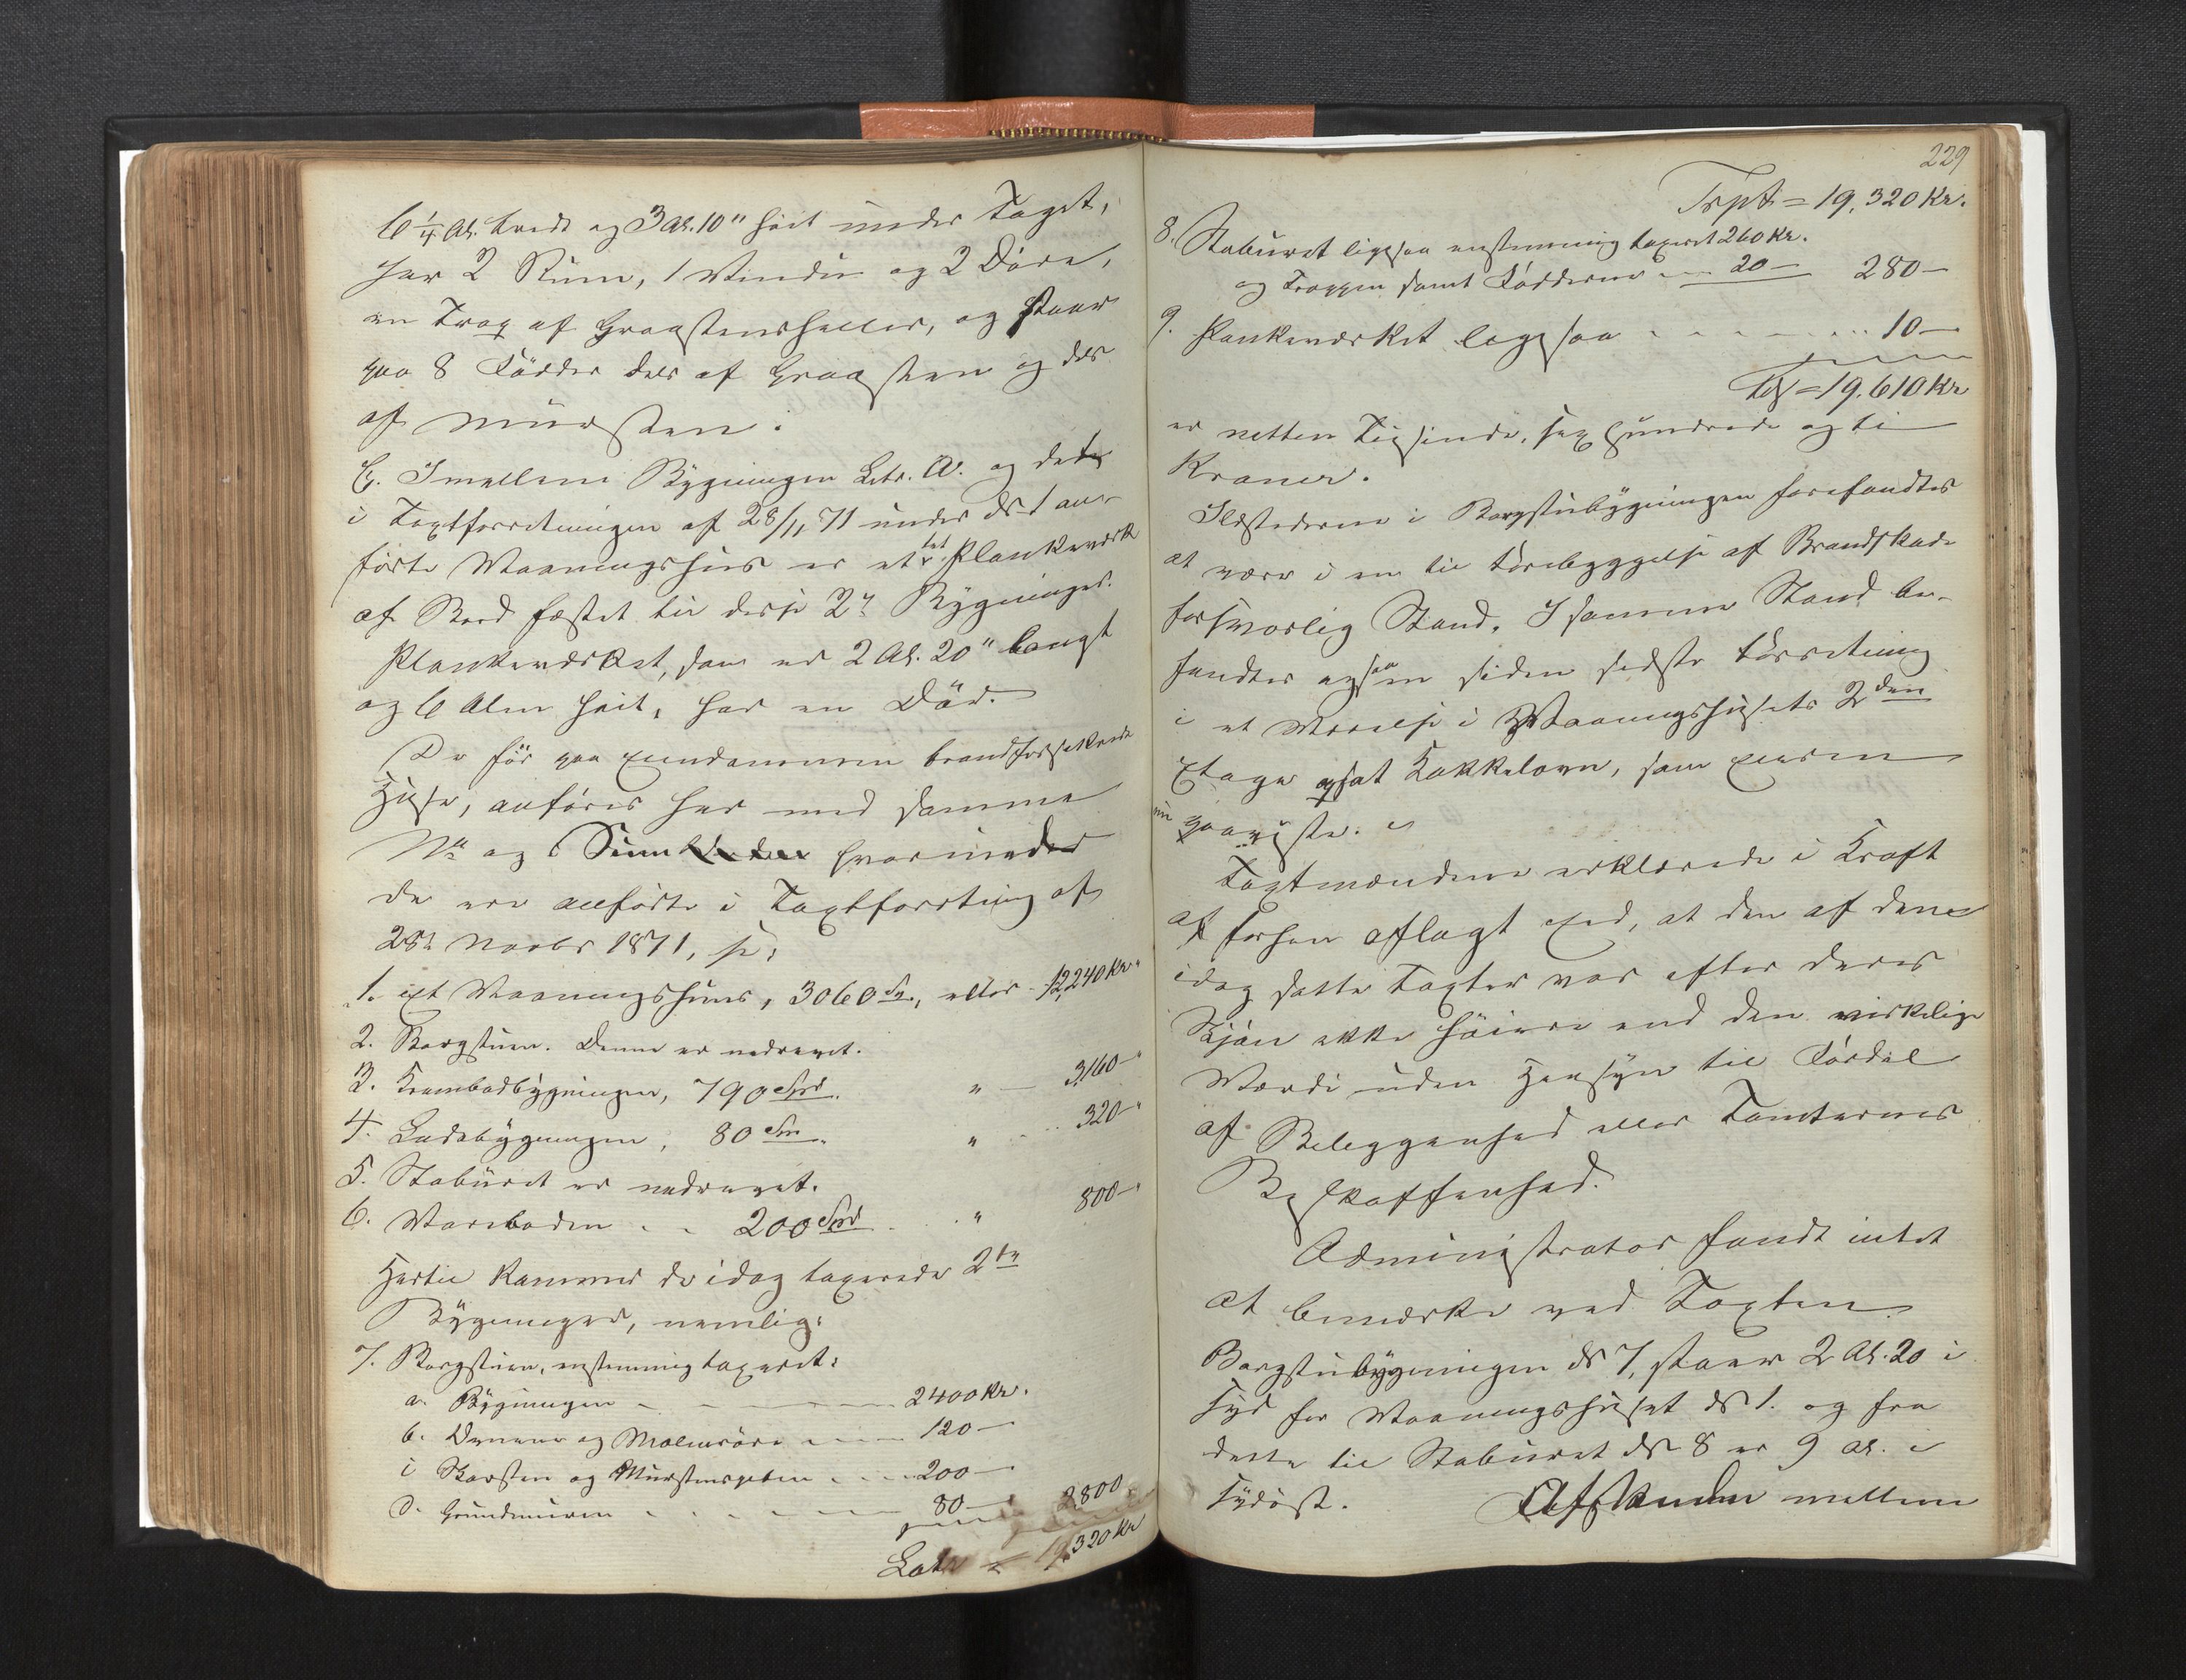 6 1/4 Al. bredt og 3 Al. 10" høit under Taget,
har 2 Rum, 1 Vindu og 2 Döre,
en Trap af Graastensheller, og staar
paa 8 Födder dels af Graasten og dels
af Mursten.
C. Imellem Bygningen Litr. A. og det
i Taxtforretningen af 28/11 71 under No 1 an-
förte Vaaningshus er et tæt Plankeværk
af Bord fæstet til disse 2de Bygninger.
Plankeværket, som er 2 Al. 20" langt
og 6 Alen höit, har en Dör.
De för paa Eiendommen brandforsikrede
Huse, anföres her med samme
No og Sum hvorunder
de ere anförte i Taxtforretning af
28de Novbr 1871, se:
1. et Vaaningshuus, 3060 Sp., eller 12,240 Kr.
2. Borgstuen. Denne er nedrevet.
3. Krambodbygningen, 790 Spd. " 3,160 -
4. Ladebygningen, 80 Spd. " 320 -
5. Staburet er nedrevet.
6. Vareboden 200 Spd " 800 -
Hertil kommer de idag taxerede 2de
Bygninger, nemlig:
7. Borgstuen, enstemmig taxeret:
a. Bygningen 2400 Kr.
b. Ovnene og Malmröre 120 -
i Skorsten og Murstenspiben 200 -
d. Grundmuren 80 - 2,800
Lat. = 19,320 Kr
229
Trspt = 19,320 Kr.
8. Staburet ligesaa enstemmig taxeret 260 Kr.
og Trappen samt Födderne 20 - 280 -
9. Plankeværket ligesaa 10 -
= 19.610 Kr
er nitten Tusinde, sex hundrede og ti
Kroner.
Ildstederne i Borgstubygningen forefandtes
at være i en til Forebyggelse af Brandskade
forsvarlig Stand. I samme Stand be-
fandtes ogsaa en siden sidste Forretning
i et Værelse i Vaaningshusets 2den
Etage opsat Kakkelovn, som Eieren
nu paaviste.
Taxtmændene erklærede i Kraft
af forhen aflagt Eed, at den af dem
idag satte Taxter var efter deres
Skjön ikke höiere end den virkelige
Værdi uden Hensyn til Fordel
af Beliggenhed eller Tomternes
Beskaffenhed.
Administrator fandt intet
at bemærke ved Taxten.
Borgstubygningen No 7, staar 2 Al. 20 i
Syd for Vaaningshuset No 1. og fra
dette til Staburet No 8 er 9 Al. i
Sydöst. Afstanden mellem